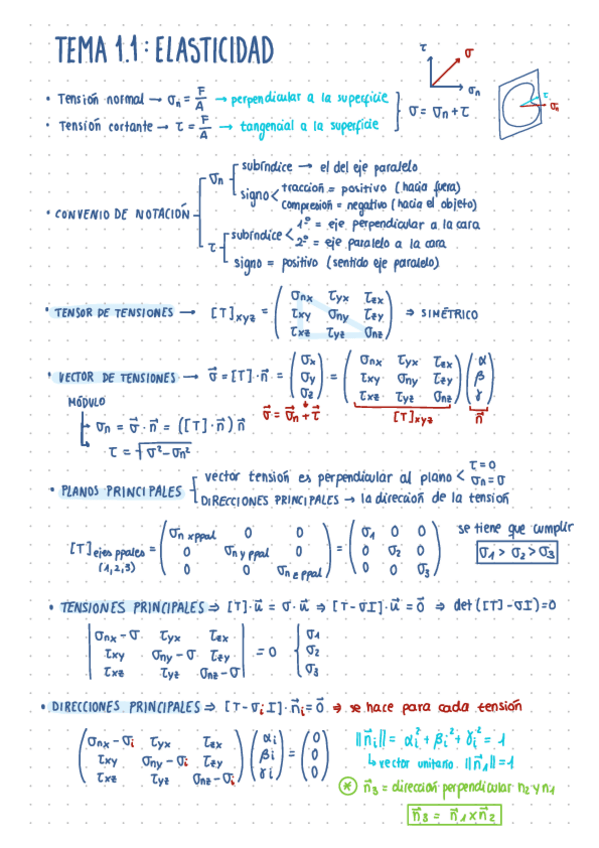 TEMA 1.1: ELASTICIDAD
τ σ
σn
τ
σn
• Tensión normal → σn = F/A → perpendicular a la superficie
• Tensión cortante → τ = F/A → tangencial a la superficie
σ = σn + τ
• CONVENIO DE NOTACIÓN
σn
subíndice → el del eje paralelo
signo < tracción = positivo (hacia fuera)
compresión = negativo (hacia el objeto)
τ
subíndice < 1º = eje perpendicular a la cara
2º = eje paralelo a la cara
signo = positivo (sentido eje paralelo)
• TENSOR DE TENSIONES → [T]xyz = ( σnx τyx τzx
τxy σny τzy
τxz τyz σnz ) ⇒ SIMÉTRICO
• VECTOR DE TENSIONES → σ⃗ = [T]·n⃗ = ( σx
σy
σz ) = ( σnx τyx τzx
τxy σny τzy
τxz τyz σnz ) ( α
β
γ )
σ⃗ = σ⃗n + τ⃗ [T]xyz n⃗
MÓDULO
σn = σ⃗ · n⃗ = ([T]·n⃗) n⃗
τ = √σ²-σn²
• PLANOS PRINCIPALES
vector tensión es perpendicular al plano < τ = 0
σn = σ
DIRECCIONES PRINCIPALES → la dirección de la tensión
[T]ejes ppales (1,2,3) = ( σn x ppal 0 0
0 σn y ppal 0
0 0 σn z ppal ) = ( σ1 0 0
0 σ2 0
0 0 σ3 )
se tiene que cumplir
σ1 > σ2 > σ3
• TENSIONES PRINCIPALES ⇒ [T]·u⃗ = σ·u⃗ ⇒ [T-σI]·u⃗ = 0⃗ ⇒ det([T]-σI)=0
| σnx - σ τyx τzx
τxy σny - σ τzy
τxz τyz σnz - σ | = 0 { σ1
σ2
σ3
• DIRECCIONES PRINCIPALES ⇒ [T-σiI]·n⃗i = 0⃗ ⇒ se hace para cada tensión
( σnx - σi τyx τzx
τxy σny - σi τzy
τxz τyz σnz - σi ) ( αi
βi
γi ) = ( 0
0
0 )
||n⃗i|| = αi² + βi² + γi² = 1
↳ vector unitario ||n⃗1|| = 1
* n⃗3 = dirección perpendicular n2 y n1
n⃗3 = n⃗1 x n⃗2